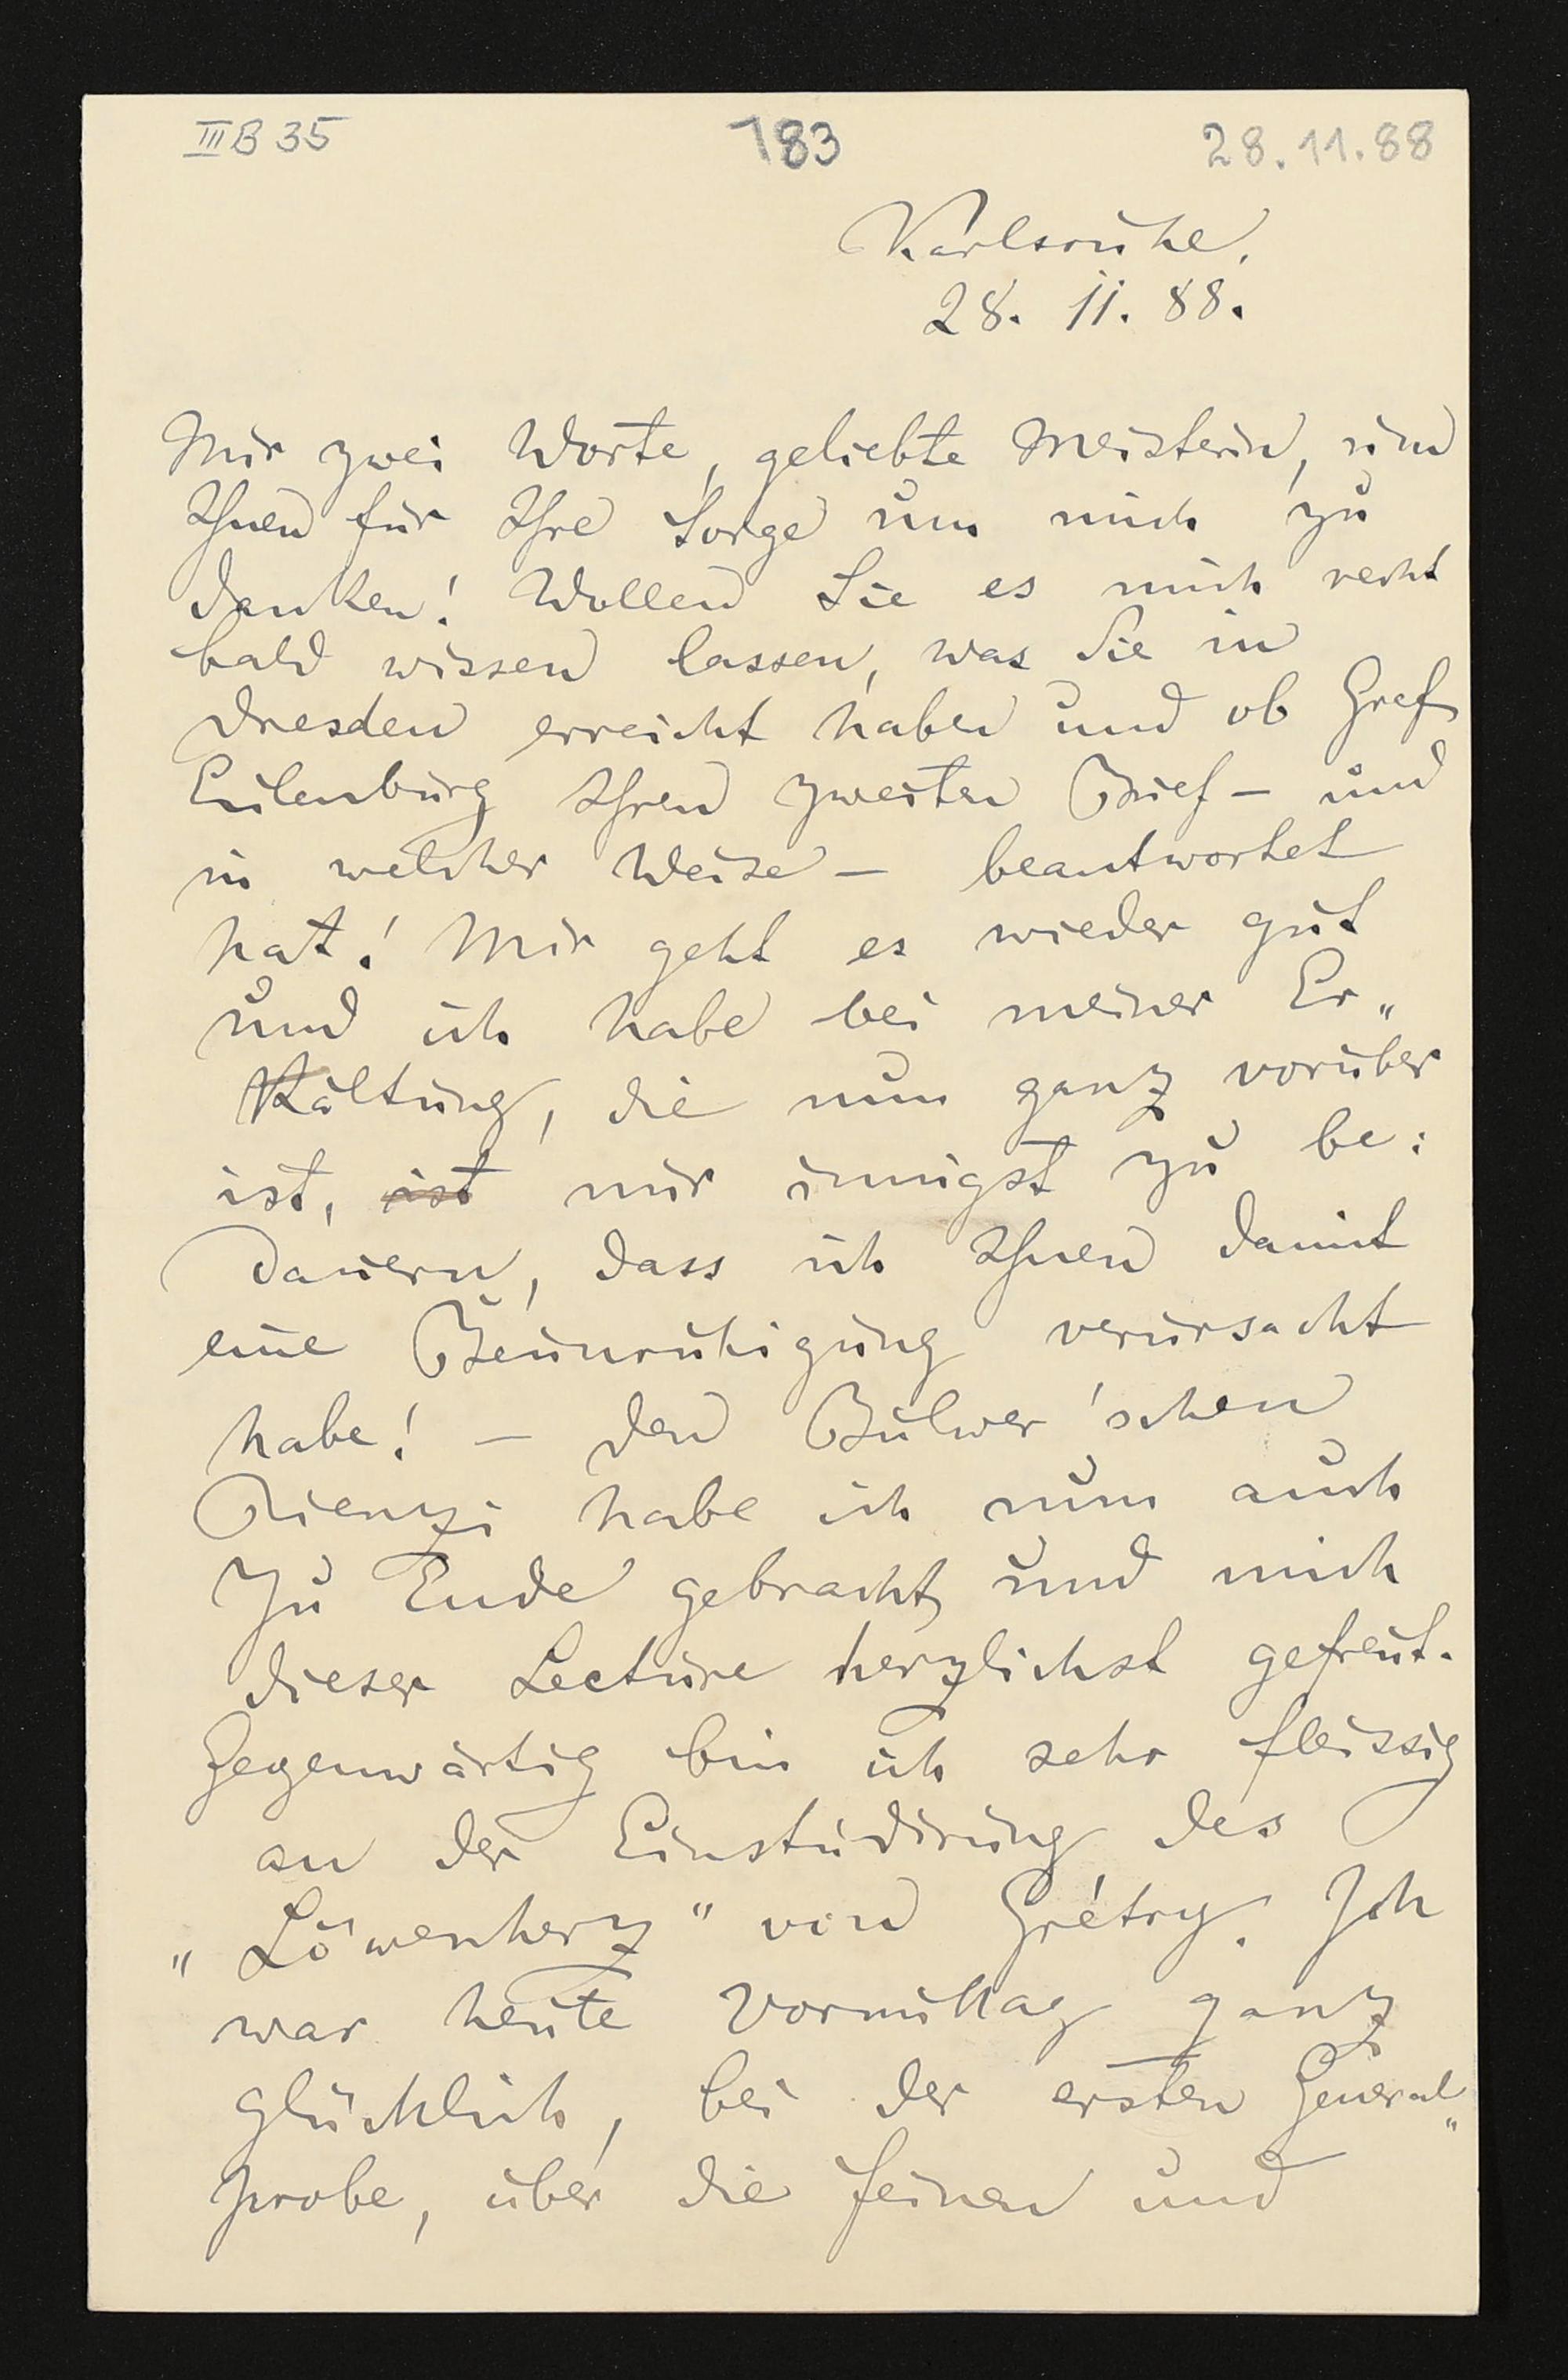 III B 35
183
28.11.88
Karlsruhe,
28. 11. 88.
Nur zwei Worte, geliebte Meisterin, um
Ihnen für Ihre Sorge um mich zu
danken! Wollen Sie es mich recht
bald wissen lassen, was Sie in
Dresden erreicht haben und ob Graf
Eulenburg Ihren zweiten Brief – und
in welcher Weise – beantwortet
hat! Mir geht es wieder gut
und ich habe bei meiner Er„
kältung, die nun ganz vorüber
ist, ist nur innigst zu be:
dauern, dass ich Ihnen damit
eine Beunruhigung verursacht
habe! – Den Bulwer'schen
Rienzi habe ich nun auch
zu Ende gebracht und mich
dieser Lectüre herzlichst gefreut.
Gegenwärtig bin ich sehr fleissig
an der Einstudirung des
„Löwenherz" von Grétry. Ich
war heute Vormittag ganz
glücklich, bei der ersten General„
probe, über die feinen und